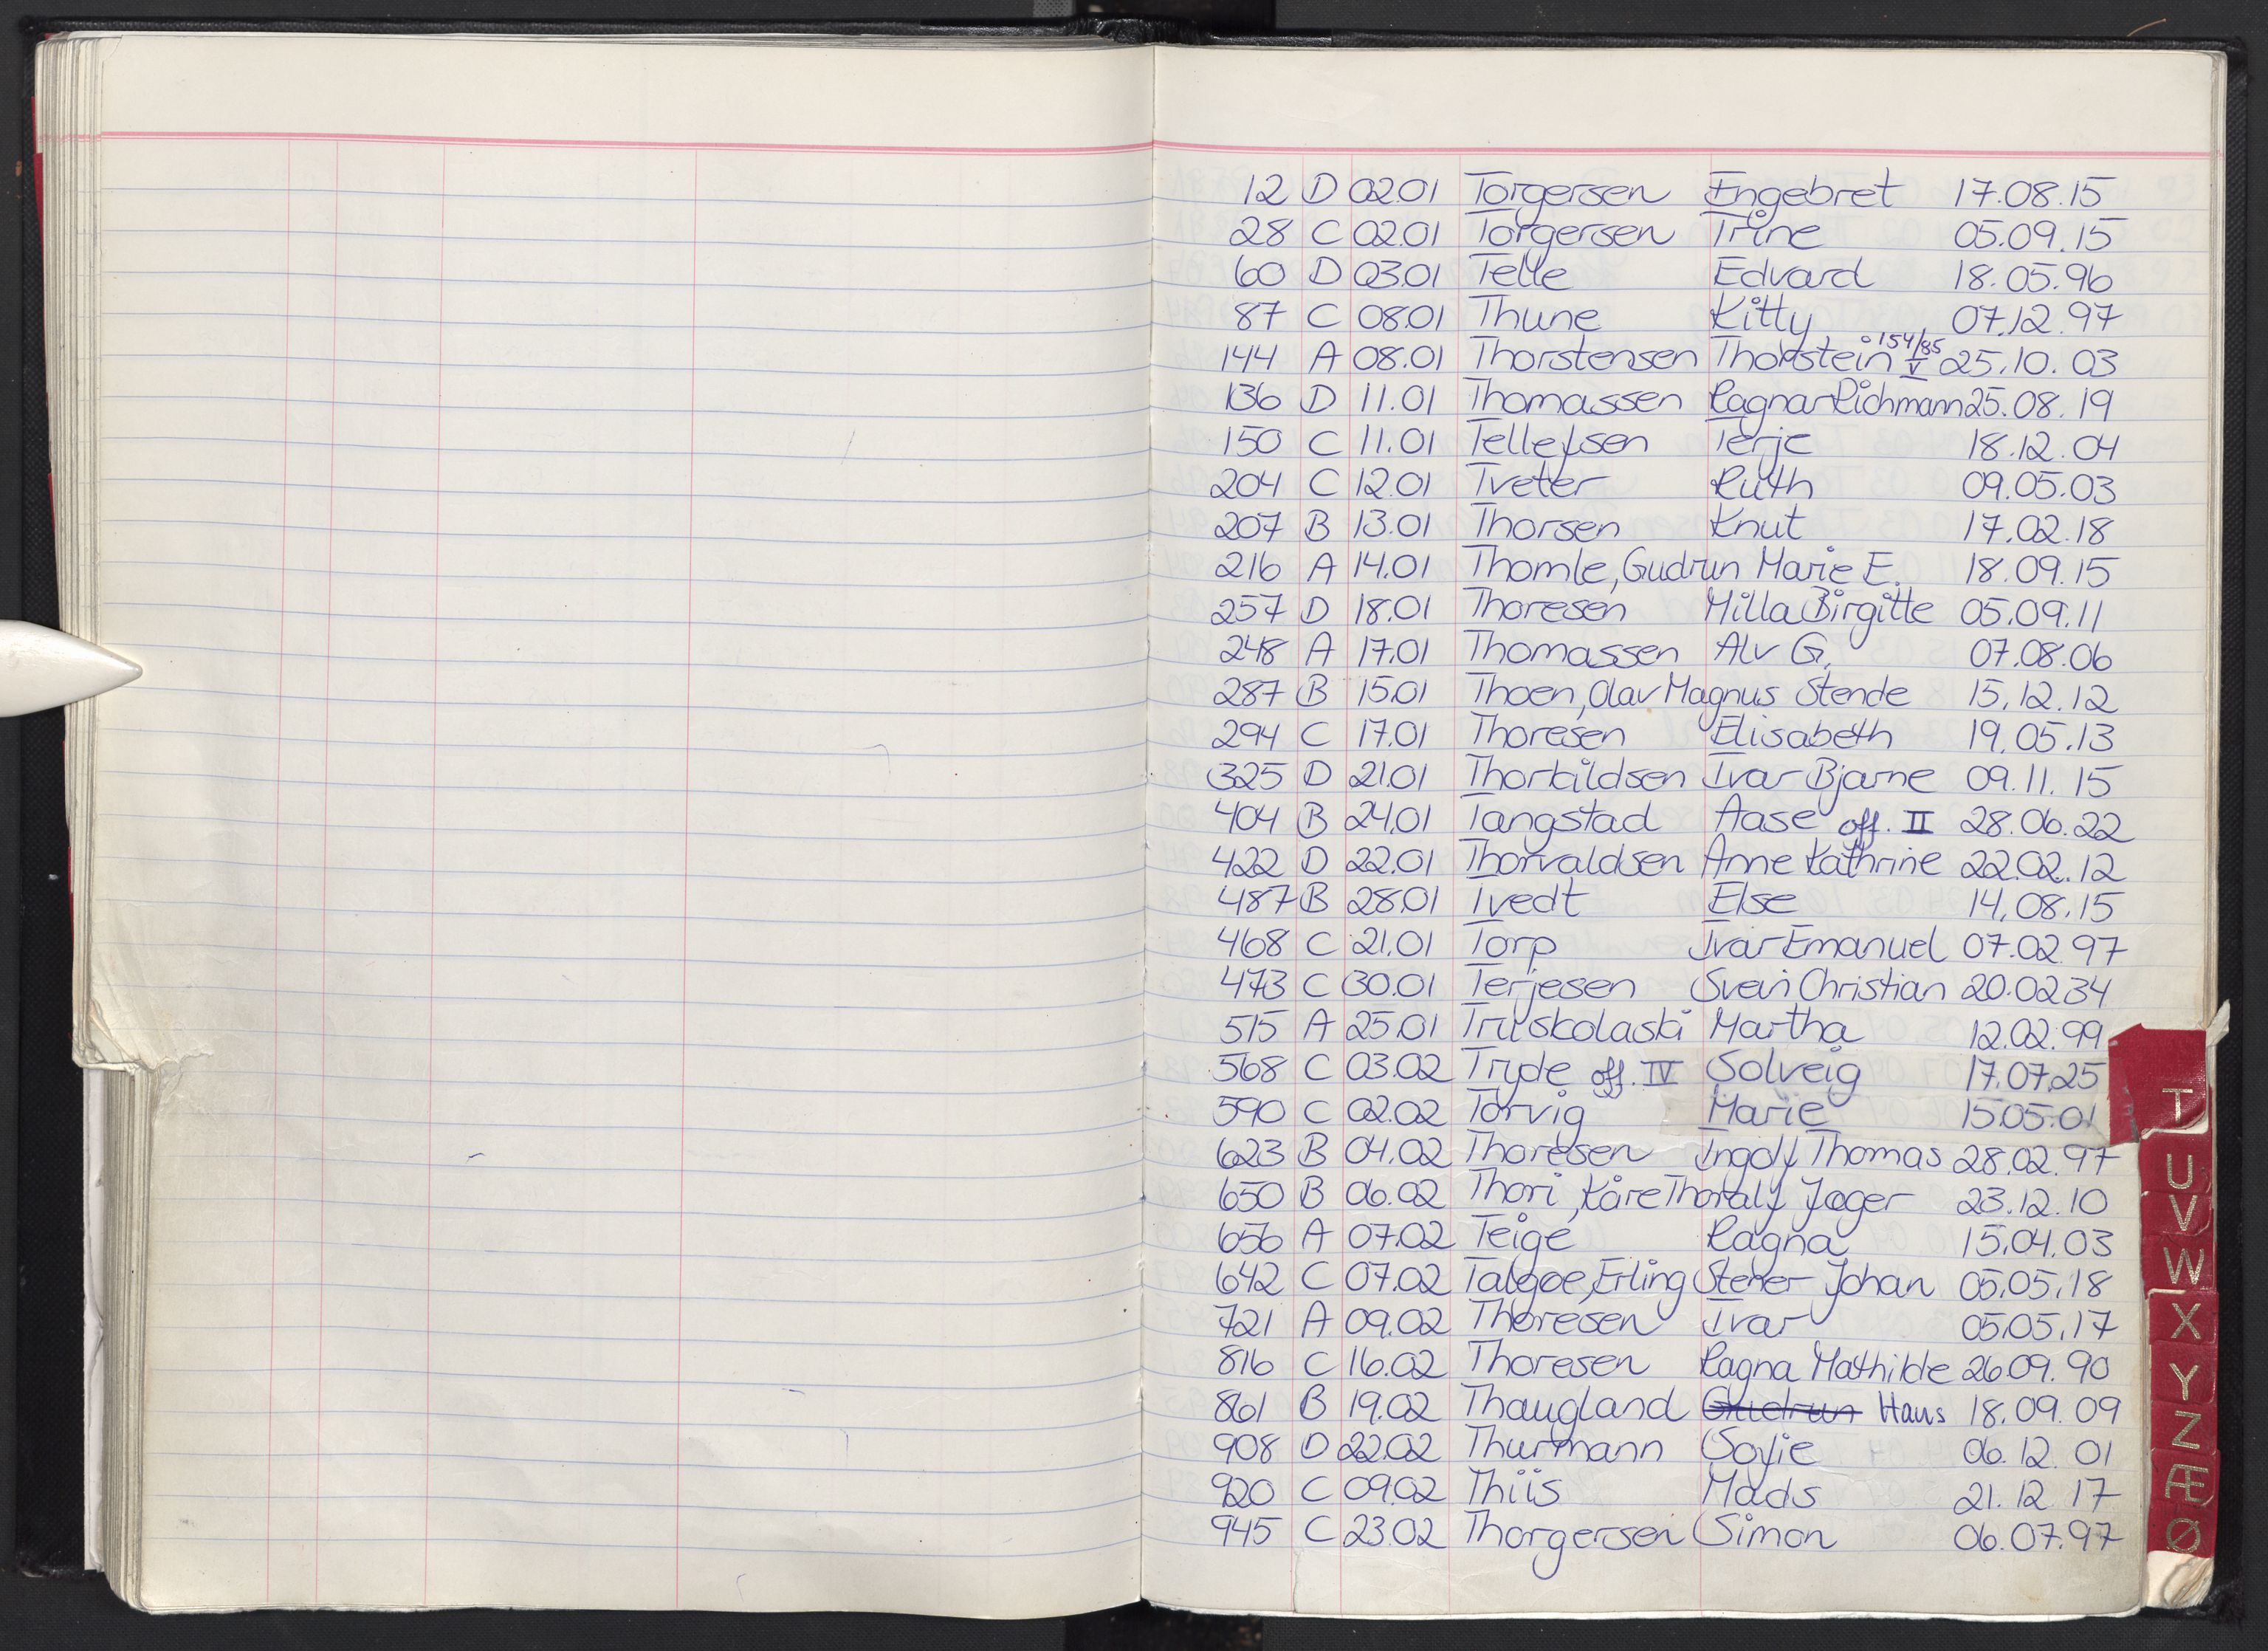 12 D 02.01 Torgersen Engebret 17.08.15
28 C 02.01 Torgersen Trine 05.09.15
60 D 03.01 Telle Edvard 18.05.96
87 C 08.01 Thune Kitty 07.12.97
144 A 08.01 Thorstensen Thorstein 154/85 V 25.10.03
136 D 11.01 Thomassen Ragnar Richmann 25.08.19
150 C 11.01 Tellefsen Terje 18.12.04
204 C 12.01 Tveter Ruth 09.05.03
207 B 13.01 Thorsen Knut 17.02.18
216 A 14.01 Thomle, Gudrun Marie E. 18.09.15
257 D 18.01 Thoresen Milla Birgitte 05.09.11
248 A 17.01 Thomassen Alv G. 07.08.06
287 B 15.01 Thoen, Olav Magnus Stende 15.12.12
294 C 17.01 Thoresen Elisabeth 19.05.13
325 D 21.01 Thorkildsen Ivar Bjarne 09.11.15
404 B 24.01 Tangstad Aase off. II 28.06.22
422 D 22.01 Thorvaldsen Anne Kathrine 22.02.12
487 B 28.01 Tvedt Else 14.08.15
468 C 21.01 Torp Ivar Emanuel 07.02.97
473 C 30.01 Terjesen Svein Christian 20.02.34
515 A 25.01 Truskolaski Martha 12.02.99
568 C 03.02 Tryde off. IV Solveig 17.07.25
590 C 02.02 Torvig Marie 15.05.01
623 B 04.02 Thoresen Ingolf Thomas 28.02.97
650 B 06.02 Thori, Kåre Thoralf Jæger 23.12.10
656 A 07.02 Teige Ragna 15.04.03
642 C 07.02 Talgoe, Erling Stener Johan 05.05.18
721 A 09.02 Thoresen Ivar 05.05.17
816 C 16.02 Thoresen Ragna Mathilde 26.09.90
861 B 19.02 Thaugland Gudrun Hans 18.09.09
908 D 22.02 Thurmann Sofie 06.12.01
920 C 09.02 Thiis Mads 21.12.17
945 C 23.02 Thorgersen Simon 06.07.97
T
U
V
W
X
Y
Z
Æ
Ø